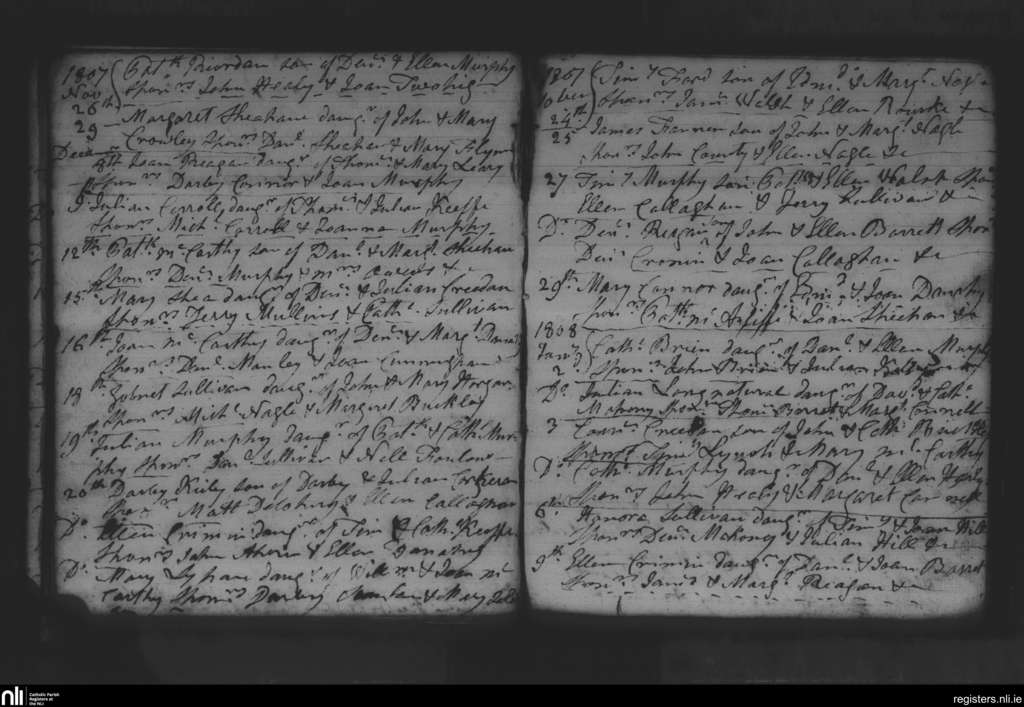 1807 Pat.k Riordan son of Den.s & Ellen Murphy
Nov Spon.rs John Healy & Joan Twohig
26th
29 Margaret Sheehane daug.r of John & Mary
Crowley Spon.rs Dan.l Sheehan & Mary Flynn
Decem
8th Joan Reagan daug.r of Thom.s & Mary Leary
Spon.rs Darby Connor & Joan Murphy
9 Julian Carroll daug.r of Thom.s & Julian Keeffe
Spon.rs Mich.l Carroll & Joanna Murphy
12th Pat.k McCarthy son of Dan.l & Marg.t Sheehan
Spon.rs Den.s Murphy & &
15th Mary Shea daug.r of Den.s & Julian Creedan
Spon.rs Jerry Mullins & Cath.e Sullivan
16th Joan McCarthy daug.r of Den.s & Marg.t
Spon.rs Den.s Manley & Joan Cunningham
18th Gobnet Sullivan daug.r of John & Mary Horgan
Spon.rs Mich.l Nagle & Margaret Buckley
19th Julian Murphy daug.r of Pat.k & Cath.e Mur
phy Spon.rs Dan.l Sullivan & Nell
20th Darby Reily son of Darby & Julian Corkeran
Spon.rs Matt & Ellen Callaghan
D.o Ellen Crimin daug.r of Tim & Cath.e Keeffe
Spon.rs John Ahern & Ellen
D.o Mary daug.r of Will.m & Joan Mc
Carthy Spon.rs Darby & Mary
1807 Tim.y Ford son of Edm.d & Marg.t
10ber Spon.rs Jam.s Welsh & Ellen Rourke &
24th
25 James son of John & Marg.t Nagle
Spon.rs John & Ellen Nagle &c
27 Tim.y Murphy son Pat.k & Ellen Spon
Ellen Callaghan & Jerry Sullivan &
D.o Den.s Reagan son of John & Ellen Barrett Spon
Den.s Cronin & Joan Callaghan &c
29th Mary Connor daug.r of & Joan
Spon.rs Pat.k Mc & Joan Sheehan &
1808
Jan.y Cath.e Brien daug.r of Dan.l & Ellen Murphy
2 Spon.rs John Brien & Julian
D.o Julian Long natural daug.r of Dav.d & Cath.e
Mahony Spon.rs Barrett & Marg.t Connell
3 son of John & Cath.e
Spon.rs Lynch & Mary McCarthy
D.o Cath.e Murphy daug.r of Dan.l & Ellen Healy
Spon.rs John Healy & Margaret
6th Honora Sullivan daug.r of Tim.y & Joan Hill
Spon.rs Den.s Mahony & Julian Hill &c
9th Ellen Crimin daug.r of Dan.l & Joan Barret
Spon.rs & Marg.t Reagan &c
nli
Catholic Parish
Registers at
the NLI
registers.nli.ie